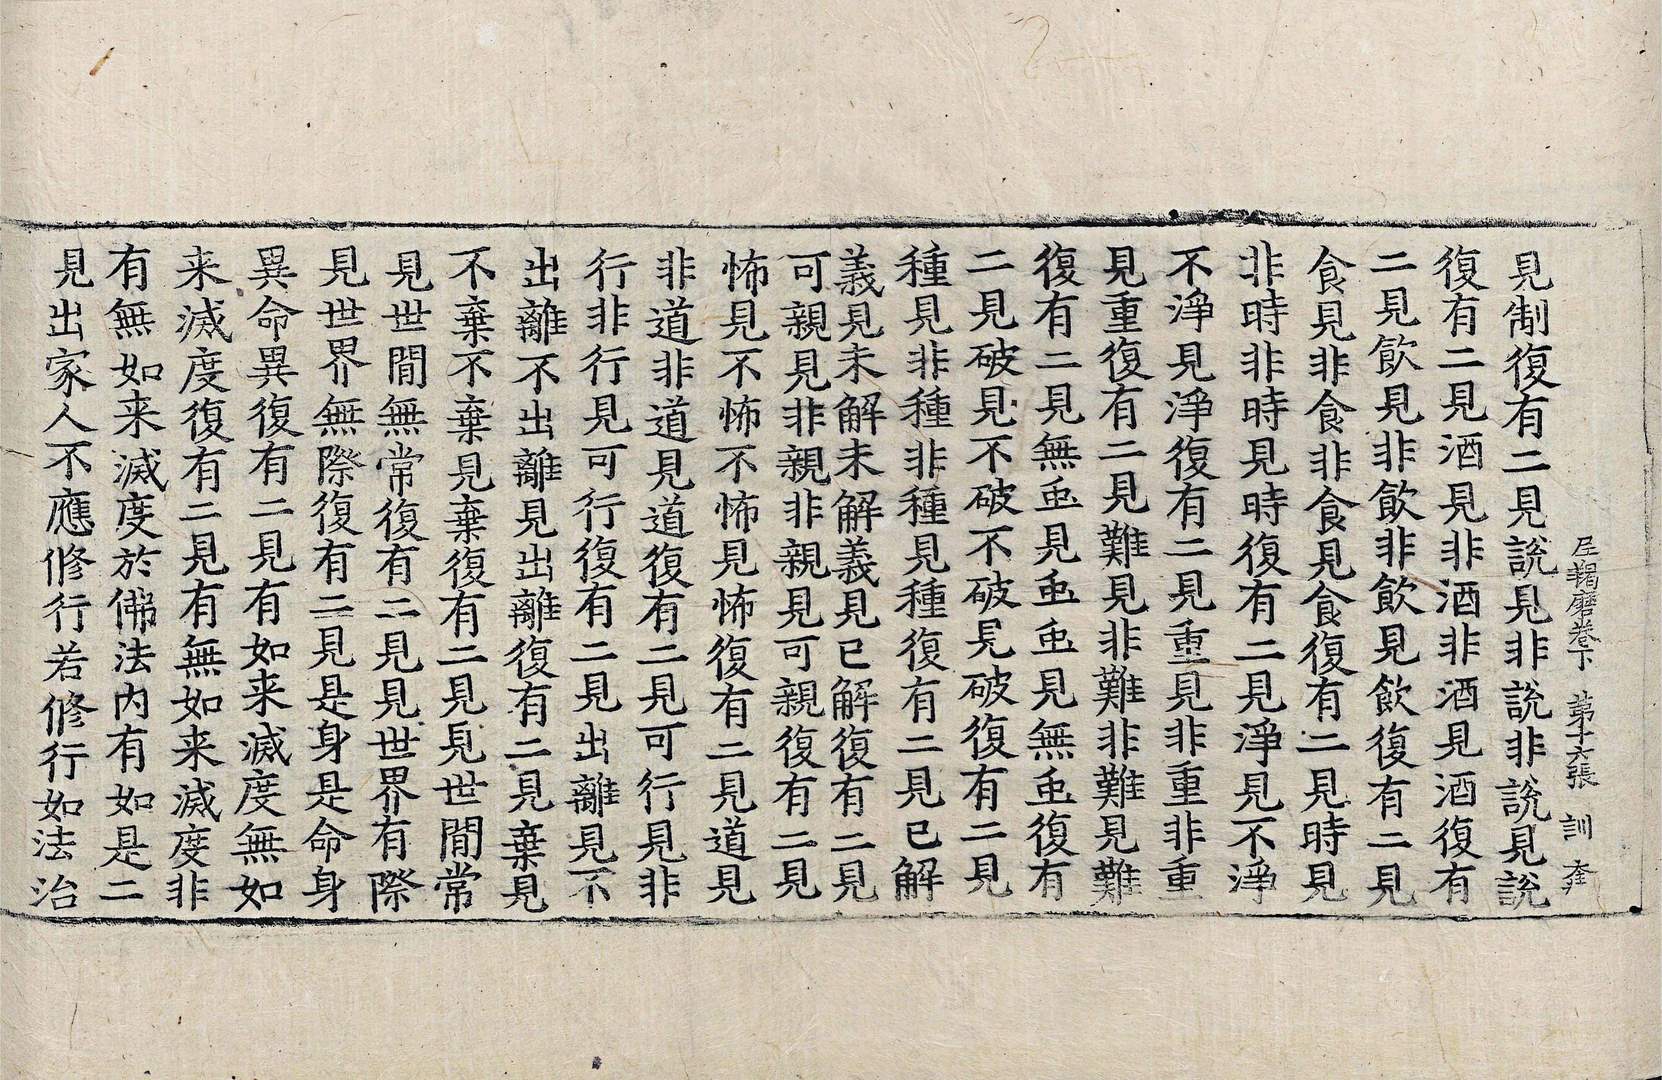 尼羯磨卷下 第十六張 訓 奎
見制復有二見說見非說非說見說
復有二見酒見非酒非酒見酒復有
二見飲見非飲非飲見飲復有二見
食見非食非食見食復有二見時見
非時非時見時復有二見淨見不淨
不淨見淨復有二見重見非重非重
見重復有二見難見非難非難見難
復有二見無䖝見䖝䖝見無䖝復有
二見破見不破不破見破復有二見
種見非種非種見種復有二見已解
義見未解未解義見已解復有二見
可親見非親非親見可親復有二見
怖見不怖不怖見怖復有二見道見
非道非道見道復有二見可行見非
行非行見可行復有二見出離見不
出離不出離見出離復有二見棄見
不棄不棄見棄復有二見見世間常
見世間無常復有二見見世界有際
見世界無際復有二見是身是命身
異命異復有二見有如来滅度無如
来滅度復有二見有無如来滅度非
有無如来滅度於佛法內有如是二
見出家人不應修行若修行如法治